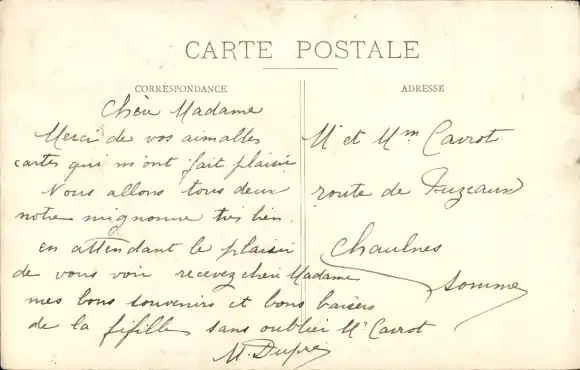 CARTE POSTALE
CORRESPONDANCE
Chère Madame
Merci de vos aimables
cartes qui m'ont fait plaisir
Nous allons tous deux
notre mignonne très bien.
en attendant le plaisir
de vous voir recevez chère Madame
mes bons souvenirs et bons baisers
de la fifille sans oublier Mr Cavrot
M. Dupré
ADRESSE
Mr et Mm Cavrot
route de Fuzeaux
Chaulnes
Somme